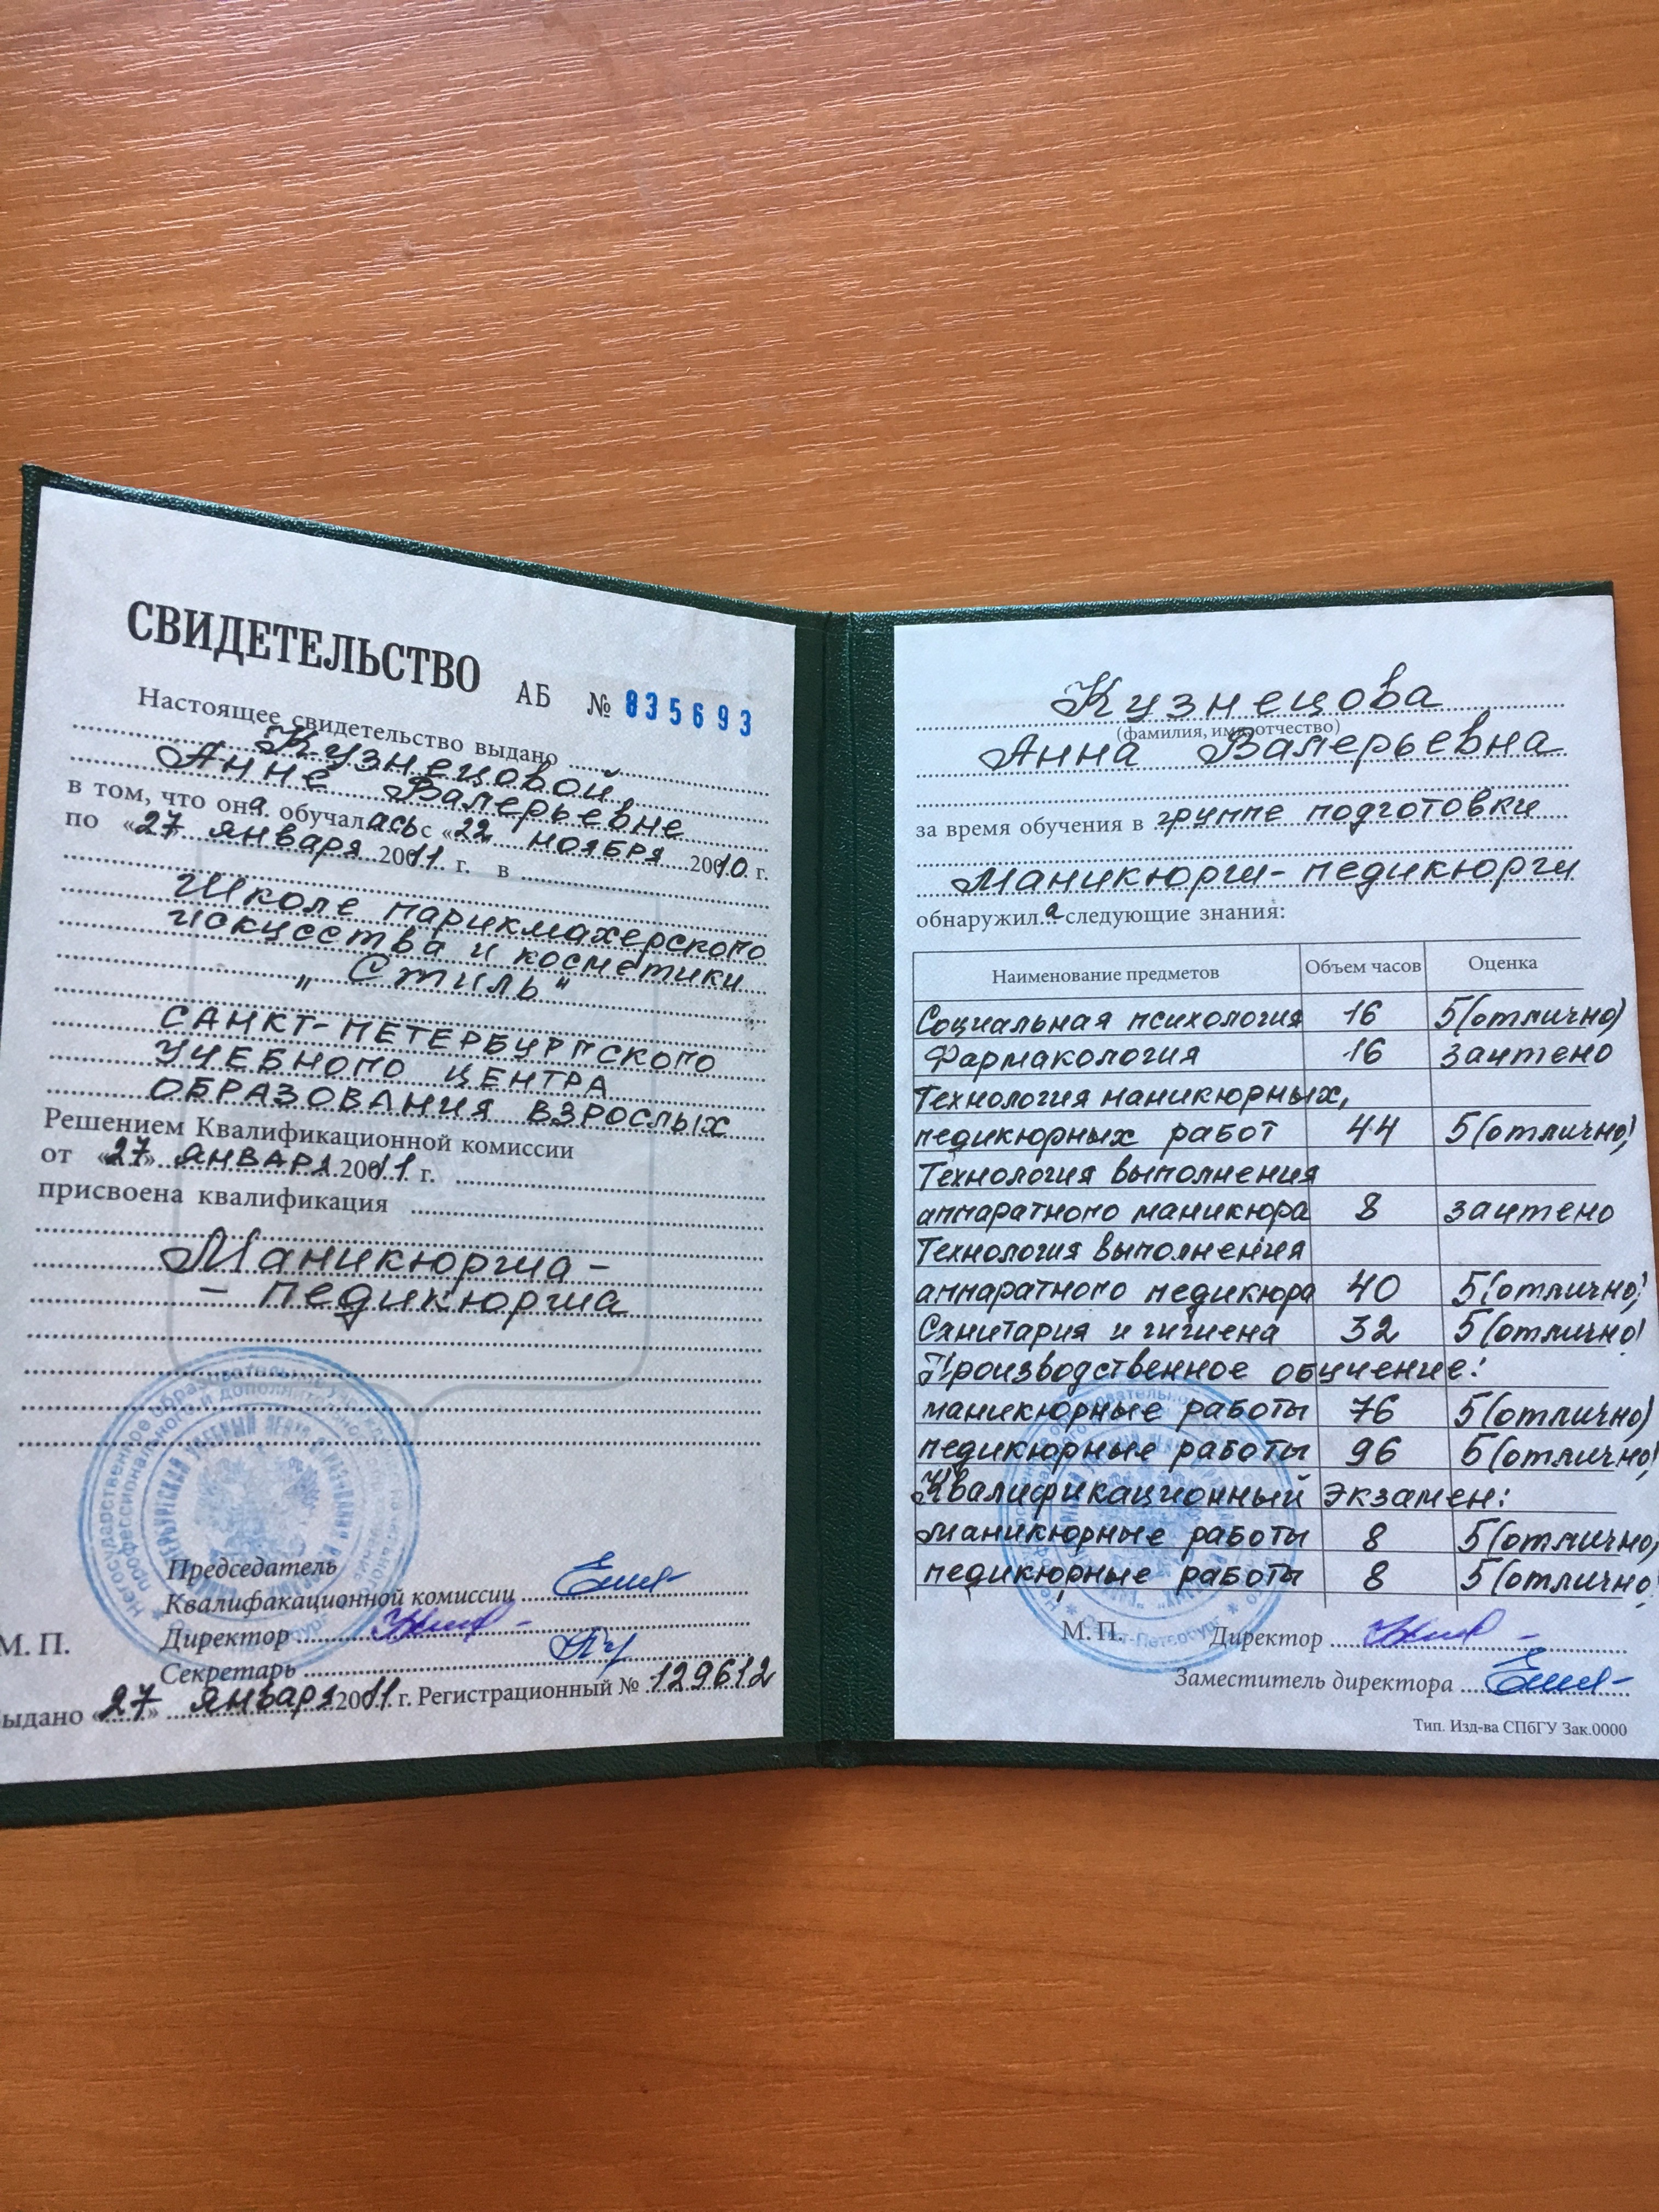 СВИДЕТЕЛЬСТВО АБ № 835693
Настоящее свидетельство выдано
Кузнецовой
Анне Валерьевне
в том, что она обучалась с «22 ноября 2010 г.
по «27 января 2011 г. в
Школе парикмахерского
искусства и косметики
„Стиль"
САНКТ-ПЕТЕРБУРГСКОГО
УЧЕБНОГО ЦЕНТРА
ОБРАЗОВАНИЯ ВЗРОСЛЫХ
Решением Квалификационной комиссии
от «27» ЯНВАРЯ 2011 г.
присвоена квалификация
Маникюрша-
- педикюрша
Председатель
Квалифакационной комиссии
Директор
М. П.
Секретарь
ыдано «27» января 2011 г. Регистрационный № 129612
Кузнецова
(фамилия, имя, отчество)
Анна Валерьевна
за время обучения в группе подготовки
Маникюрш-педикюрш
обнаружила следующие знания:
Наименование предметов Объем часов Оценка
Социальная психология 16 5(отлично)
Фармакология 16 зачтено
Технология маникюрных,
педикюрных работ 44 5(отлично)
Технология выполнения
аппаратного маникюра 8 зачтено
Технология выполнения
аппаратного педикюра 40 5(отлично)
Санитария и гигиена 32 5(отлично)
Производственное обучение:
маникюрные работы 76 5(отлично)
педикюрные работы 96 5(отлично)
Квалификационный экзамен:
маникюрные работы 8 5(отлично)
педикюрные работы 8 5(отлично)
М. П. Директор
Заместитель директора
Тип. Изд-ва СПбГУ Зак.0000